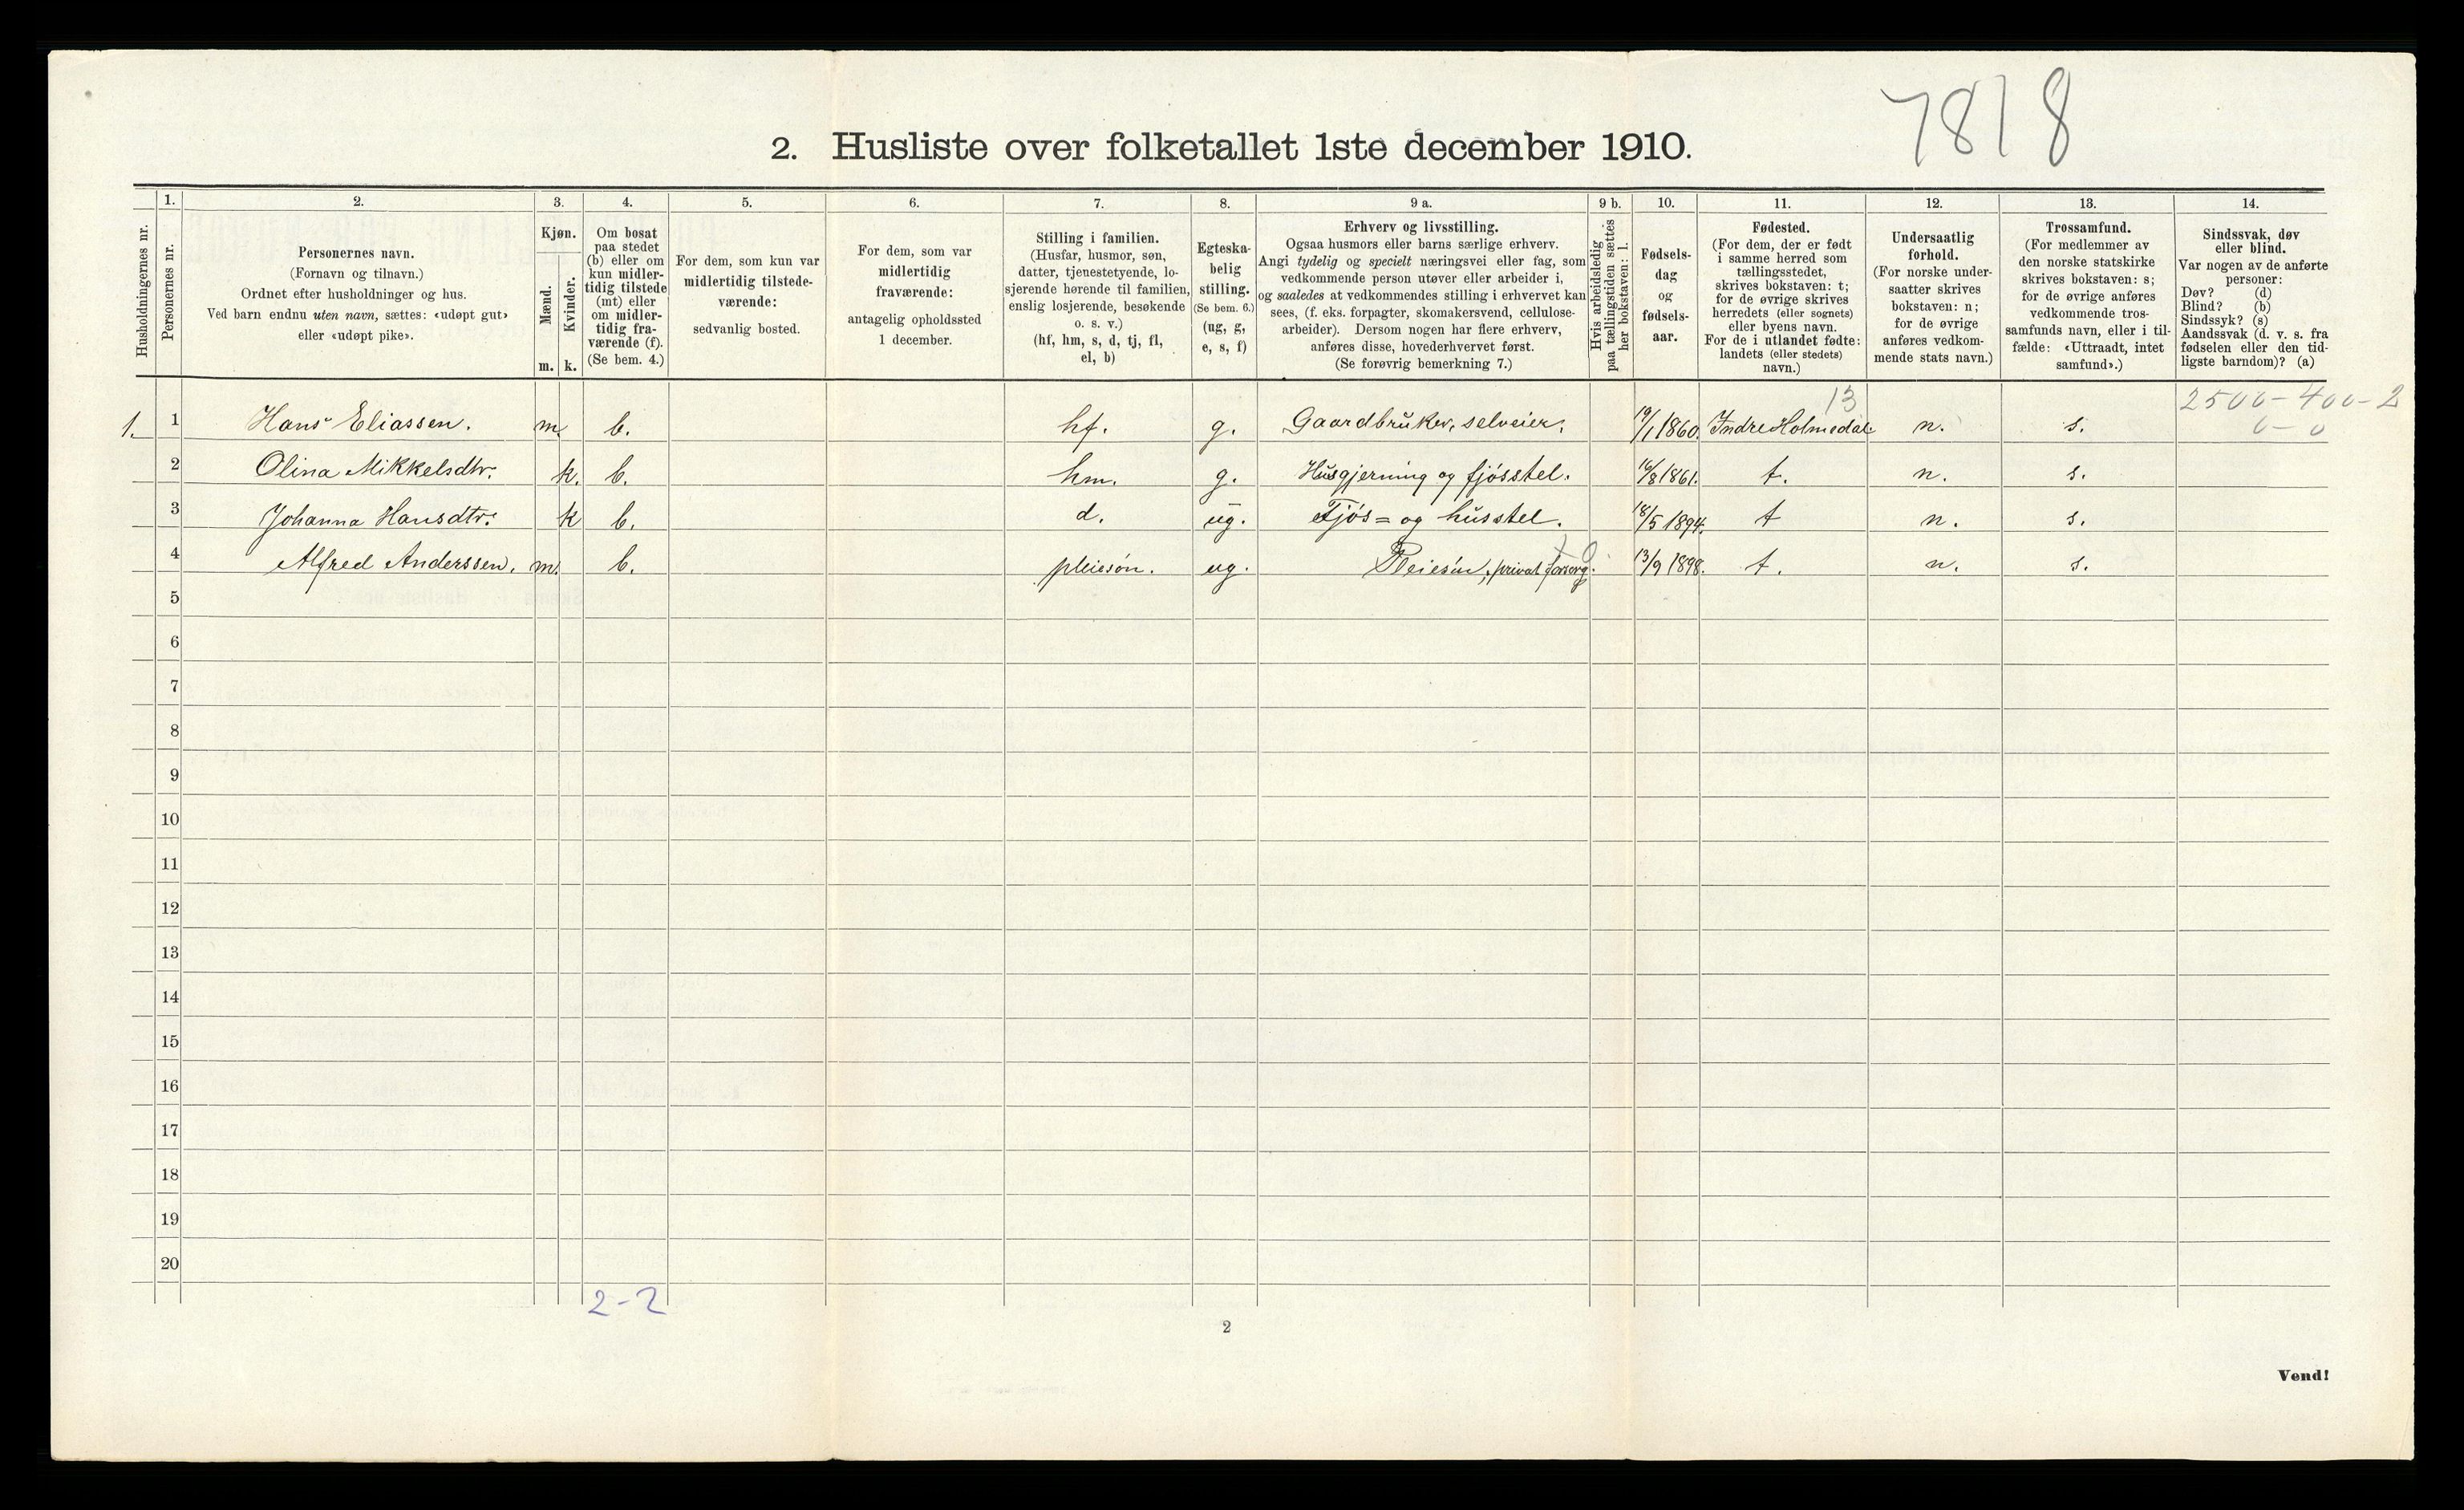 7818
2. Husliste over folketallet 1ste december 1910.
Husholdningernes nr.
1.
Personernes nr.
2.
Personernes navn.
(Fornavn og tilnavn.)
Ordnet efter husholdninger og hus.
Ved barn endnu uten navn, sættes: «udøpt gut»
eller «udøpt pike».
3.
Kjøn.
Mænd.
Kvinder.
m. k.
4.
Om bosat
paa stedet
(b) eller om
kun midler-
tidig tilstede
(mt) eller
om midler-
tidig fra-
værende (f).
(Se bem. 4.)
5.
For dem, som kun var
midlertidig tilstede-
værende:
sedvanlig bosted.
6.
For dem, som var
midlertidig
fraværende:
antagelig opholdssted
1 december.
7.
Stilling i familien.
(Husfar, husmor, søn,
datter, tjenestetyende, lo-
sjerende hørende til familien,
enslig losjerende, besøkende
o. s. v.)
(hf, hm, s, d, tj, fl,
el, b)
8.
Egteska-
belig
stilling.
(Se bem. 6.)
(ug, g,
e, s, f)
9 a.
Erhverv og livsstilling.
Ogsaa husmors eller barns særlige erhverv.
Angi tydelig og specielt næringsvei eller fag, som
vedkommende person utøver eller arbeider i,
og saaledes at vedkommendes stilling i erhvervet kan
sees, (f. eks. forpagter, skomakersvend, cellulose-
arbeider). Dersom nogen har flere erhverv,
anføres disse, hovederhvervet først.
(Se forøvrig bemerkning 7.)
9 b.
Hvis arbeidsledig
paa tællingstiden sættes
her bokstaven: l.
10.
Fødsels-
dag
og
fødsels-
aar.
11.
Fødested.
(For dem, der er født
i samme herred som
tællingsstedet,
skrives bokstaven: t;
for de øvrige skrives
herredets (eller sognets)
eller byens navn.
For de i utlandet fødte:
landets (eller stedets)
navn.)
12.
Undersaatlig
forhold.
(For norske under-
saatter skrives
bokstaven: n;
for de øvrige
anføres vedkom-
mende stats navn.)
13.
Trossamfund.
(For medlemmer av
den norske statskirke
skrives bokstaven: s;
for de øvrige anføres
vedkommende tros-
samfunds navn, eller i til-
fælde: «Uttraadt, intet
samfund».)
14.
Sindssvak, døv
eller blind.
Var nogen av de anførte
personer:
Døv? (d)
Blind? (b)
Sindssyk? (s)
Aandssvak (d. v. s. fra
fødselen eller den tid-
ligste barndom)? (a)
13 2500-400-2
1. 1 Hans Eliassen. m. b. hf. g. Gaardbruker, selveier. 19/1 1860. Indre Holmedal. n. s. 0-0
2 Olina Mikkelsdtr. k. b. hm. g. Husgjerning og fjøsstel. 16/8 1861. t. n. s.
3 Johanna Hansdtr. k b. d. ug. Fjøs= og husstel. 18/5 1894. t n. s.
4 Alfred Anderssen. m. b. pleiesøn. ug. Pleiesøn, privat forsorg. 13/9 1898. t. n. s.
5
6
7
8
9
10
11
12
13
14
15
16
17
18
19
20
2-2
2
Vend!